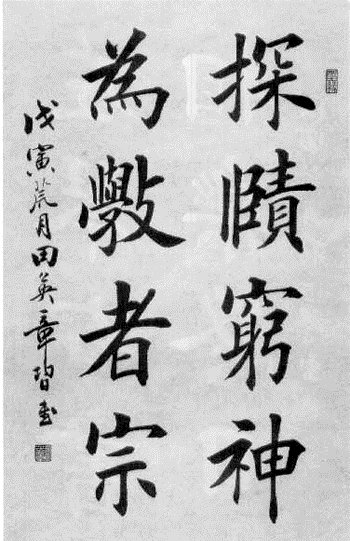 探賾窮神
為斆者宗
戊寅荒月田英章書